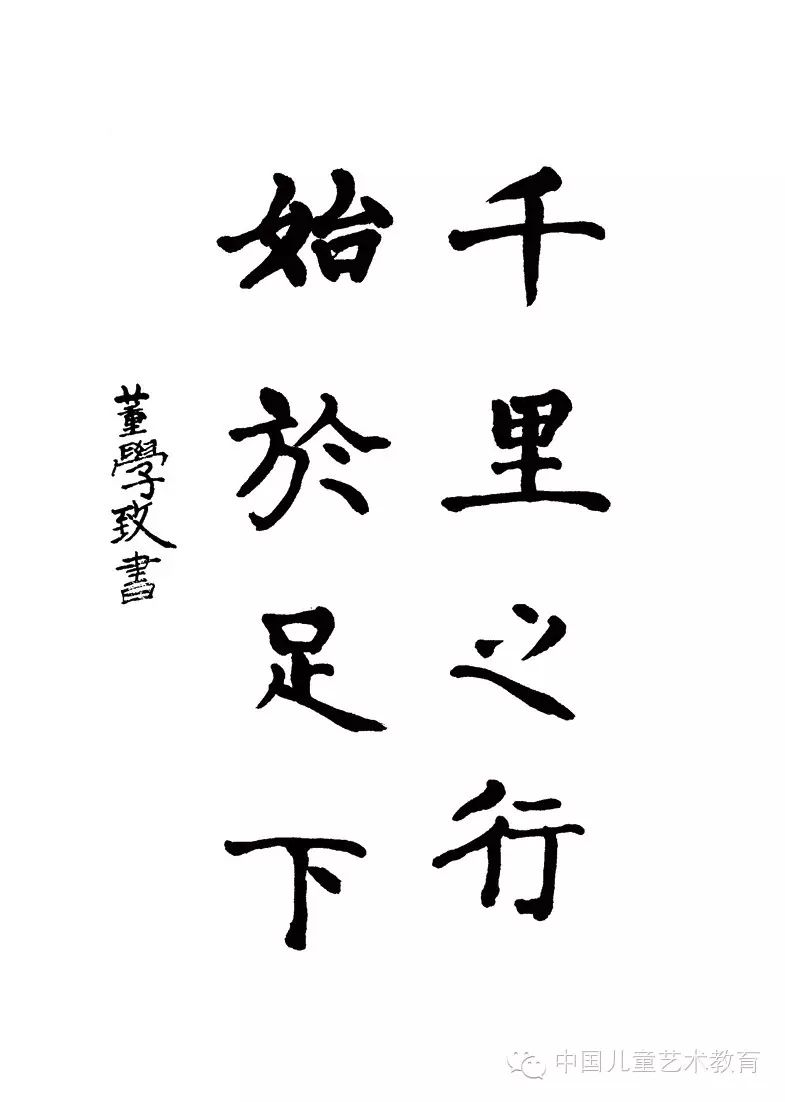 千里之行
始於足下
董學致書
中国儿童艺术教育